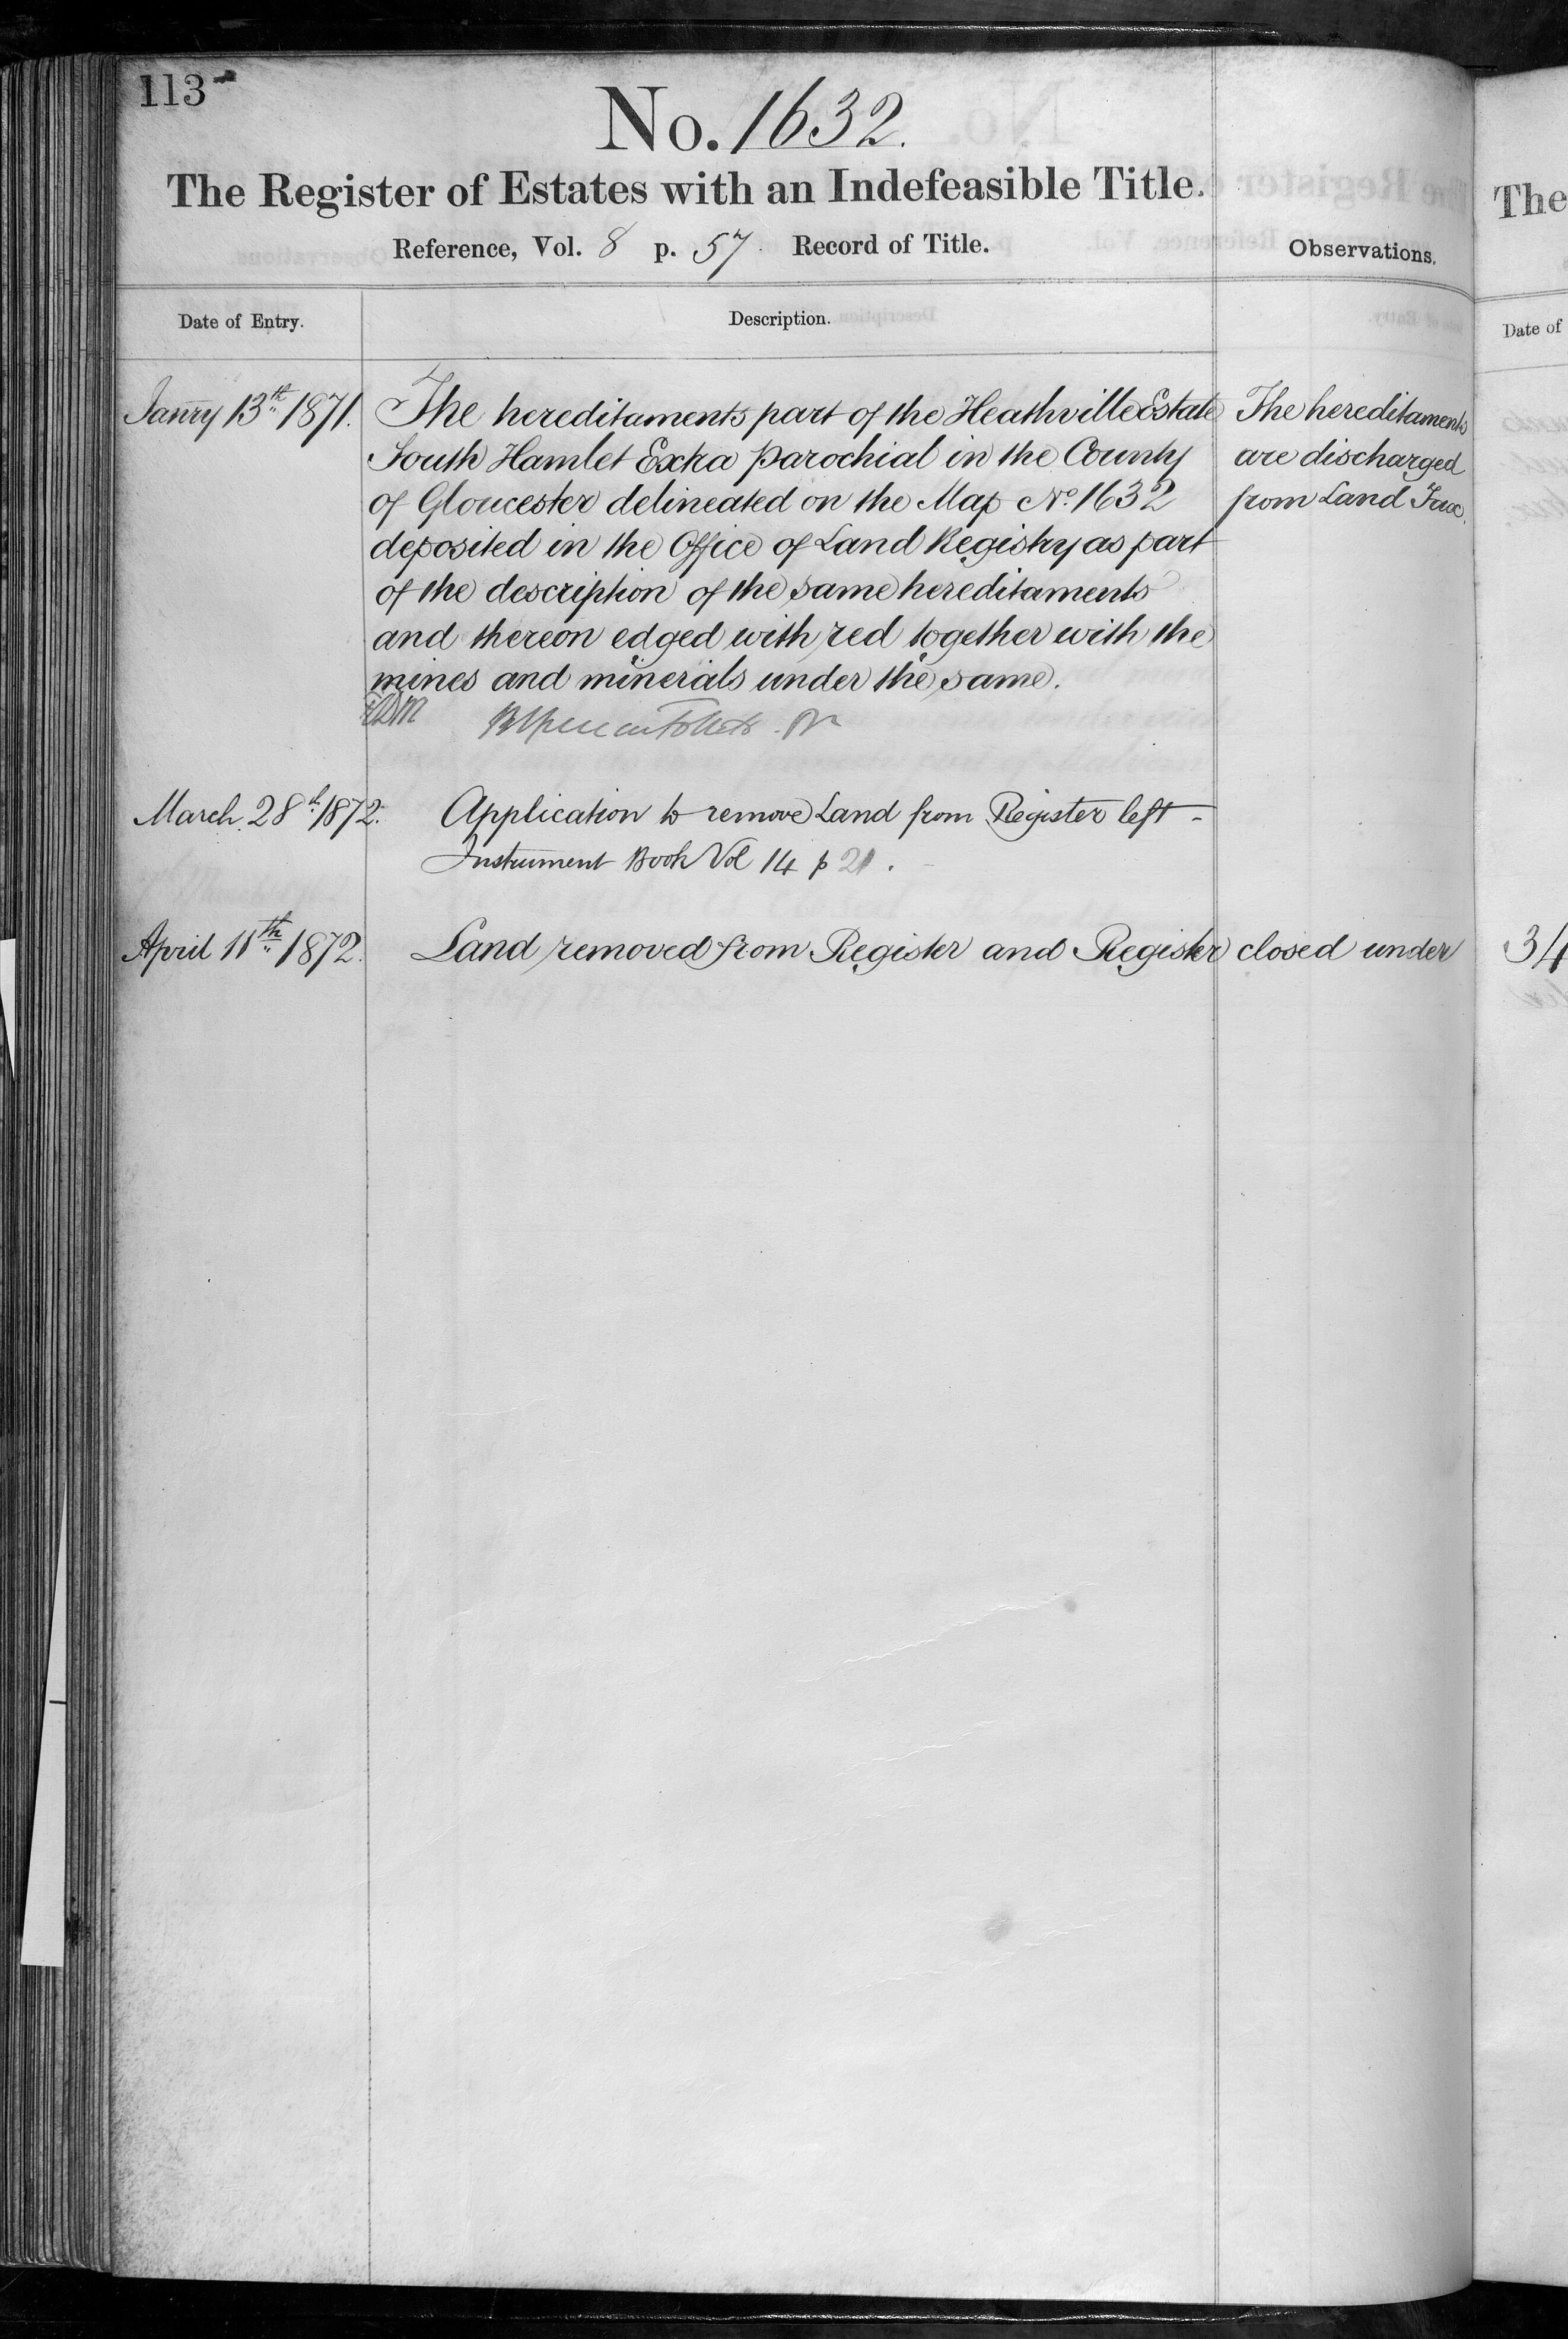 113
No. 1632.
The Register of Estates with an Indefeasible Title.
Reference, Vol. 8 p. 57. Record of Title.
Observations.
Date of Entry.
Description.
Janry 13th 1871.
The hereditaments part of the Heathville Estate
South Hamlet Extra parochial in the County
of Gloucester delineated on the Map No. 1632
deposited in the Office of Land Registry as part
of the description of the same hereditaments
and thereon edged with red together with the
mines and minerals under the same.
The hereditaments
are discharged
from Land Tax.
March 28th 1872.
Application to remove Land from Register left -
Instrument Book Vol 14 p 21.
April 11th 1872.
Land removed from Register and Register closed under
The
Date of
34